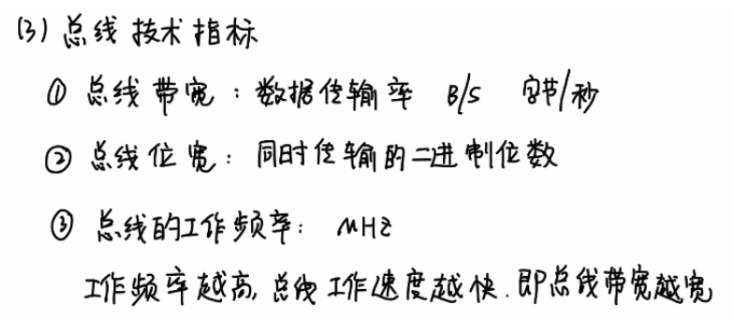 (3) 总线技术指标
① 总线带宽：数据传输率 B/S 字节/秒
② 总线位宽：同时传输的二进制位数
③ 总线的工作频率： MHZ
工作频率越高,总线工作速度越快.即总线带宽越宽